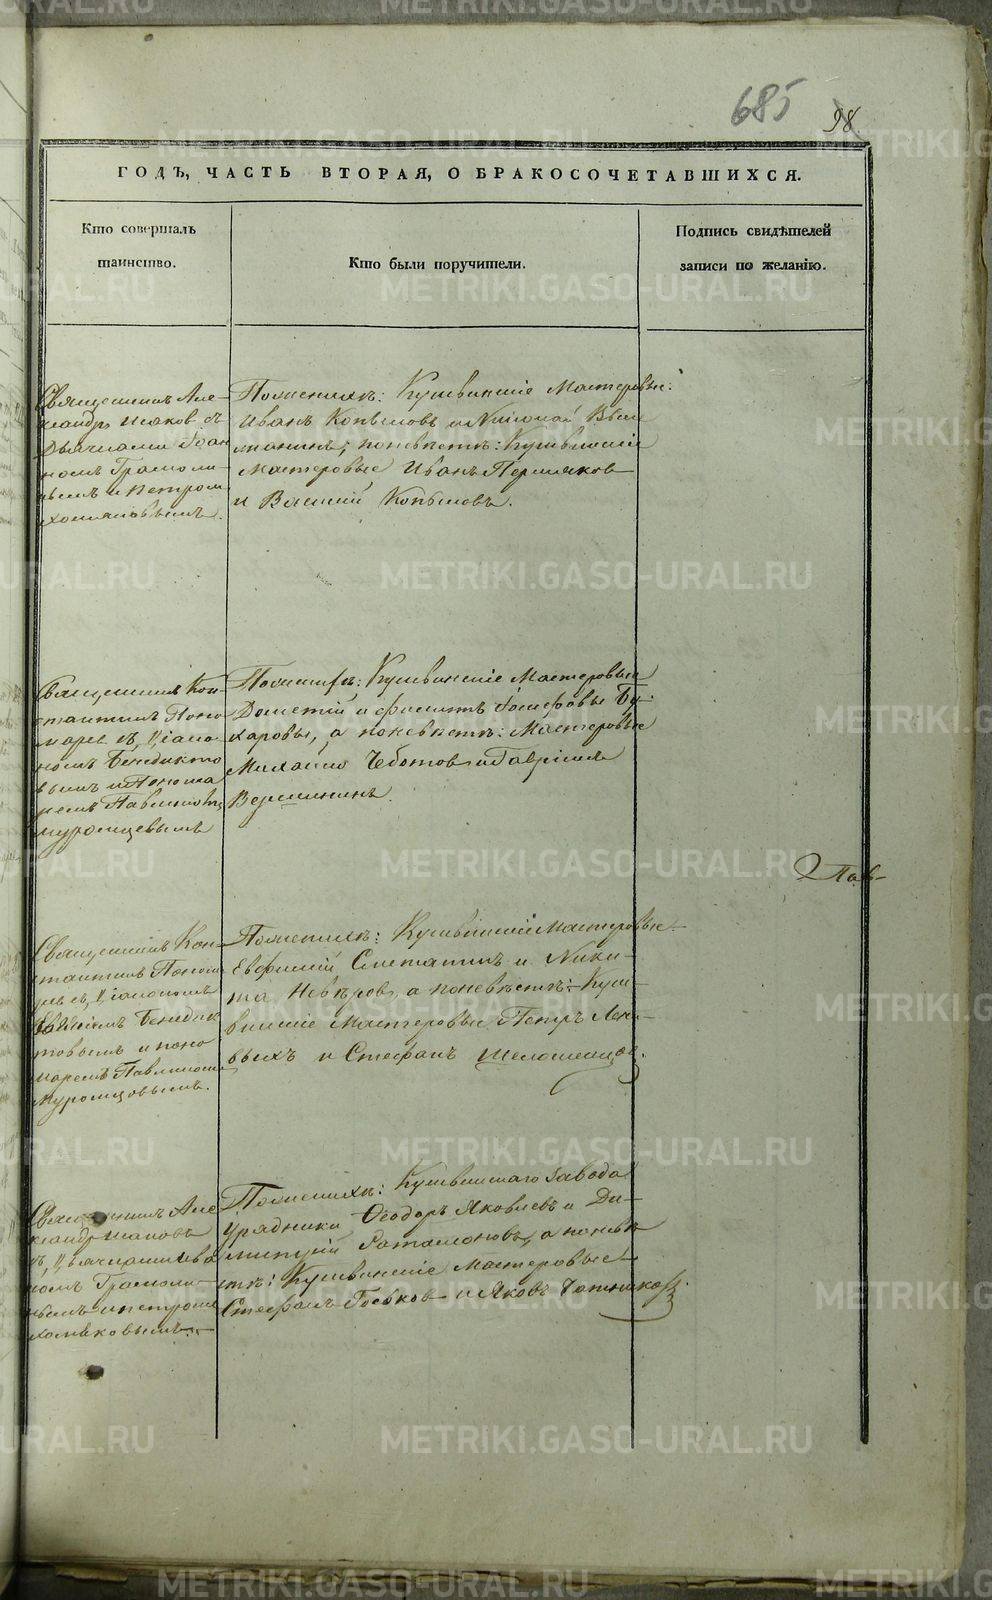 685 98
ГОДЪ, ЧАСТЬ ВТОРАЯ, О БРАКОСОЧЕТАВШИХСЯ.
Кто совершалъ
таинство.
Кто были поручители.
Подпись свидѣтелей
записи по желанію.
Священникъ Але-
ксандръ Исаков съ
Дьячками Іоан
номъ Грамоли-
нымъ и Петром
Хомяковымъ.
По женихѣ: Кушвинскіе Мастеровые:
Иванъ Копысовъ и Николай
по невѣстѣ: Кушвинскіе
Мастеровые Иванъ Пермяков
и Василій Копысовъ.
Священникъ Кон-
стантинъ Поно
маревъ, Діако-
номъ Бенедикто
вымъ и Понома
ремъ Павлином
Муромцевымъ
По женихѣ: Кушвинскіе Мастеровые
Дометій и Филиптъ Іосифовы Бу-
харовы, а по невѣстѣ: Мастеровые
Михаило Чеботов и Гавріилъ
Вершининъ.
Пав-
Священникъ Кон-
стантинъ Поном
Діакономъ
Бенедик
товымъ и поно
маремъ Павлином
Муромцовымъ.
По женихѣ: Кушвинскіе Мастеровые
Евфимій Сметанинъ и Ники-
та Невѣров, а по невѣстѣ: Куш-
винскіе Мастеровые Петръ
и Стефанъ
Священникъ Але
ксандръ Исаковъ
съ Дьячками Ива
номъ Грамоли-
нымъ и Петром
Хомяковымъ.
По женихѣ: Кушвинскаго завода
Урядники Ѳеодоръ Яковлевъ и Ди-
митрій а по невѣ
стѣ: Кушвинскіе Мастеровые
Стефанъ и Яковъ
METRIKI.GASO-URAL.RU